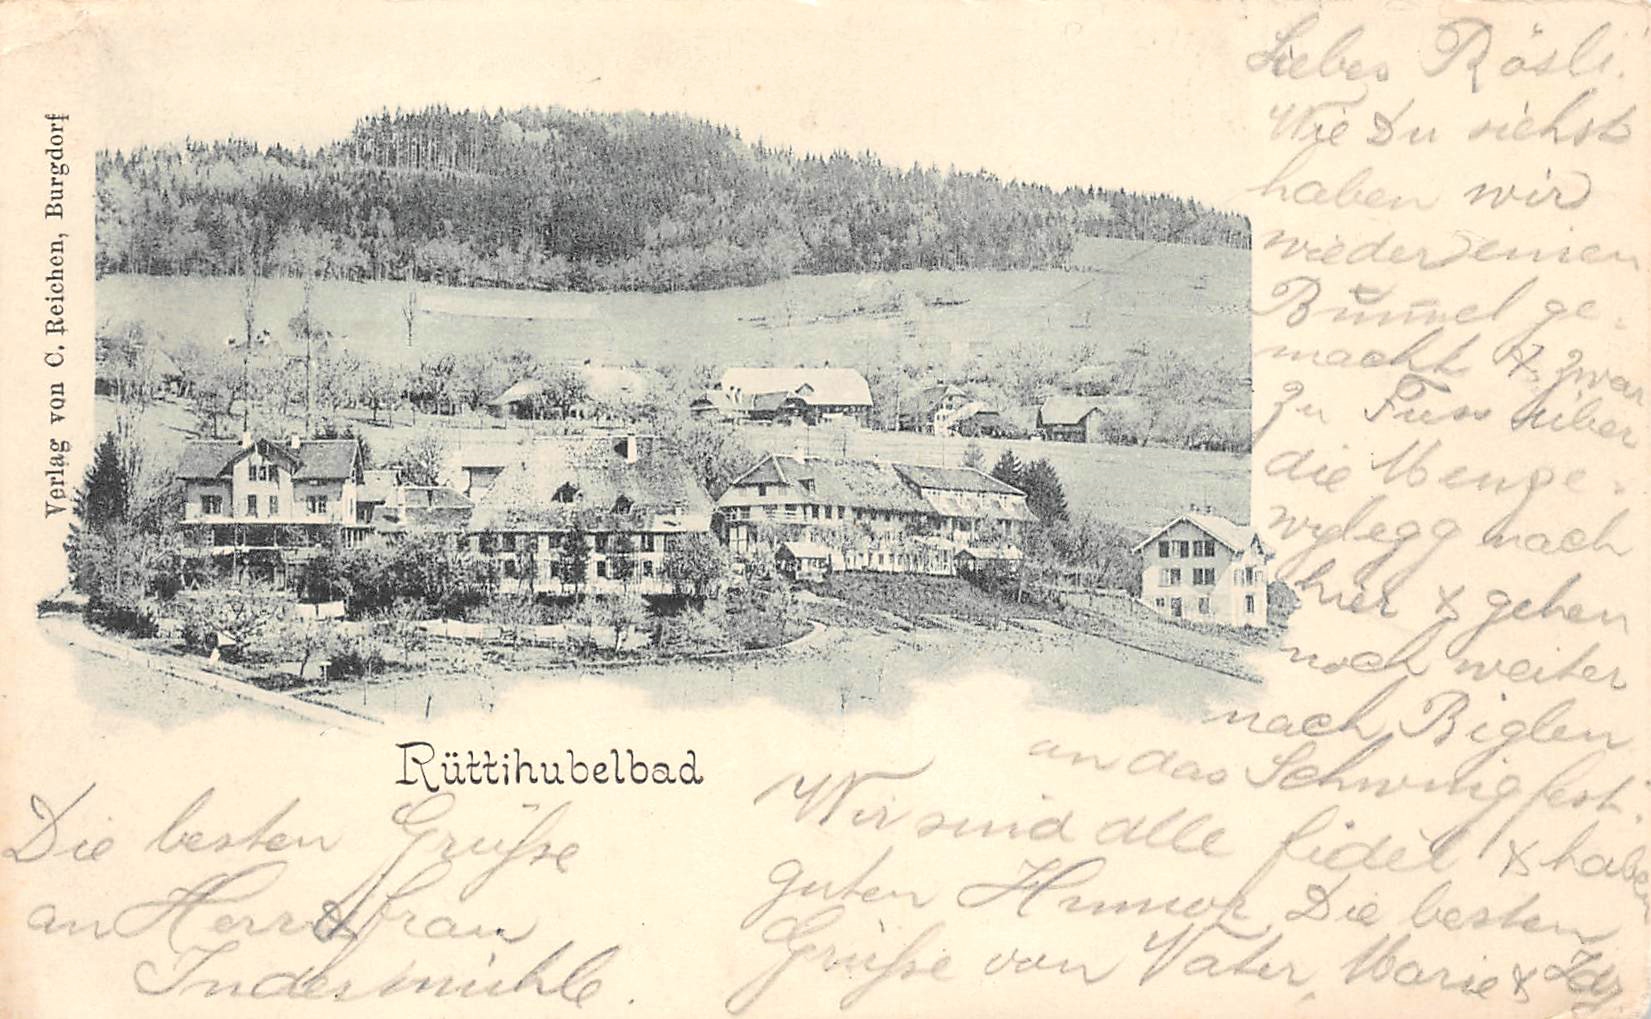 Verlag von C. Reichen, Burgdorf
Rüttihubelbad
Liebes Rösli!
Wie Du siehst
haben wir
wieder einen
Bummel ge-
macht & zwar
zu Fuss über
die Menge-
wylegg nach
hier & gehen
noch weiter
nach Biglen
an das Schwingfest.
Wir sind alle fidel & haben
guten Humor. Die besten
Grüsse von Vater, Marie & Ida.
Die besten Grüsse
an Herr & Frau
Indermühle.